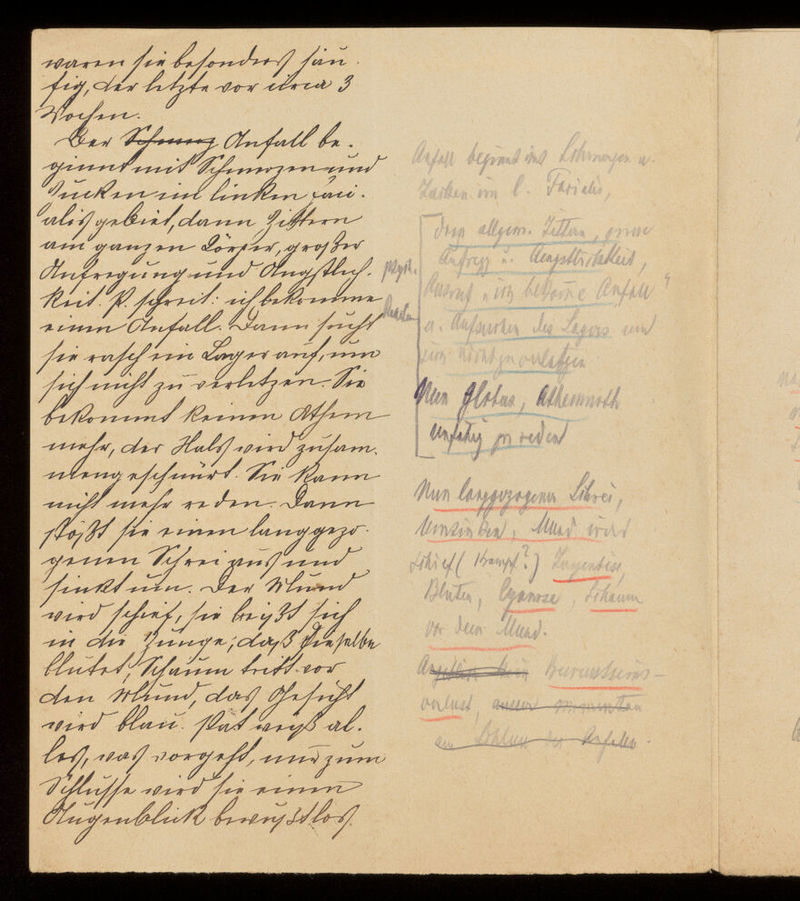 waren sie besonders häu-
fig, der letzte vor circa 3
Wochen.
Der Schmerz Anfall be-
ginnt mit Schmerzen und
Zucken im linken Faci-
alisgebiet, dann Zittern
am ganzen Körper, großer
Aufregung und Ängstlich-
keit. P. schreit: ich bekomme
einen Anfall. Dann sucht
sie rasch ein Lager auf, um
sich nicht zu verletzen. Sie
bekommt keinen Athem
mehr, der Hals wird zusam-
mengeschnürt. Sie kann
nicht mehr reden. Dann
stößt sie einen langgezo-
genen Schrei aus und
sinkt um. Der Mund
wird schief, sie beißt sich
in die Zunge, daß dieselbe
blutet, Schaum tritt vor
den Mund, das Gesicht
wird blau. Pat weiß al-
les, was vorgeht, nur zum
Schlusse wird sie einen
Augenblick bewußtlos.
Anfall beginnt mit Schmerzen u.
Zucken im l. Facialis,
dann allgem. Zittern, grosse
Aufregg u. Aengstlichkeit,
psych.
Ausruf „ich bekomme Anfall"
u. Aufsuchen des Lagers um
sich nicht zu verletzen
Nun Globus, Athemnoth
unfähig zu reden
Nun langgezogener Schrei,
Umsinken, Mund wird
schief (Krampf?) Zungenbiss,
Bluten, Cyanose, Schaum
vor dem Mund.
Bewusstseins-
verlust, ausser momentan
am Schluss des Anfalls.